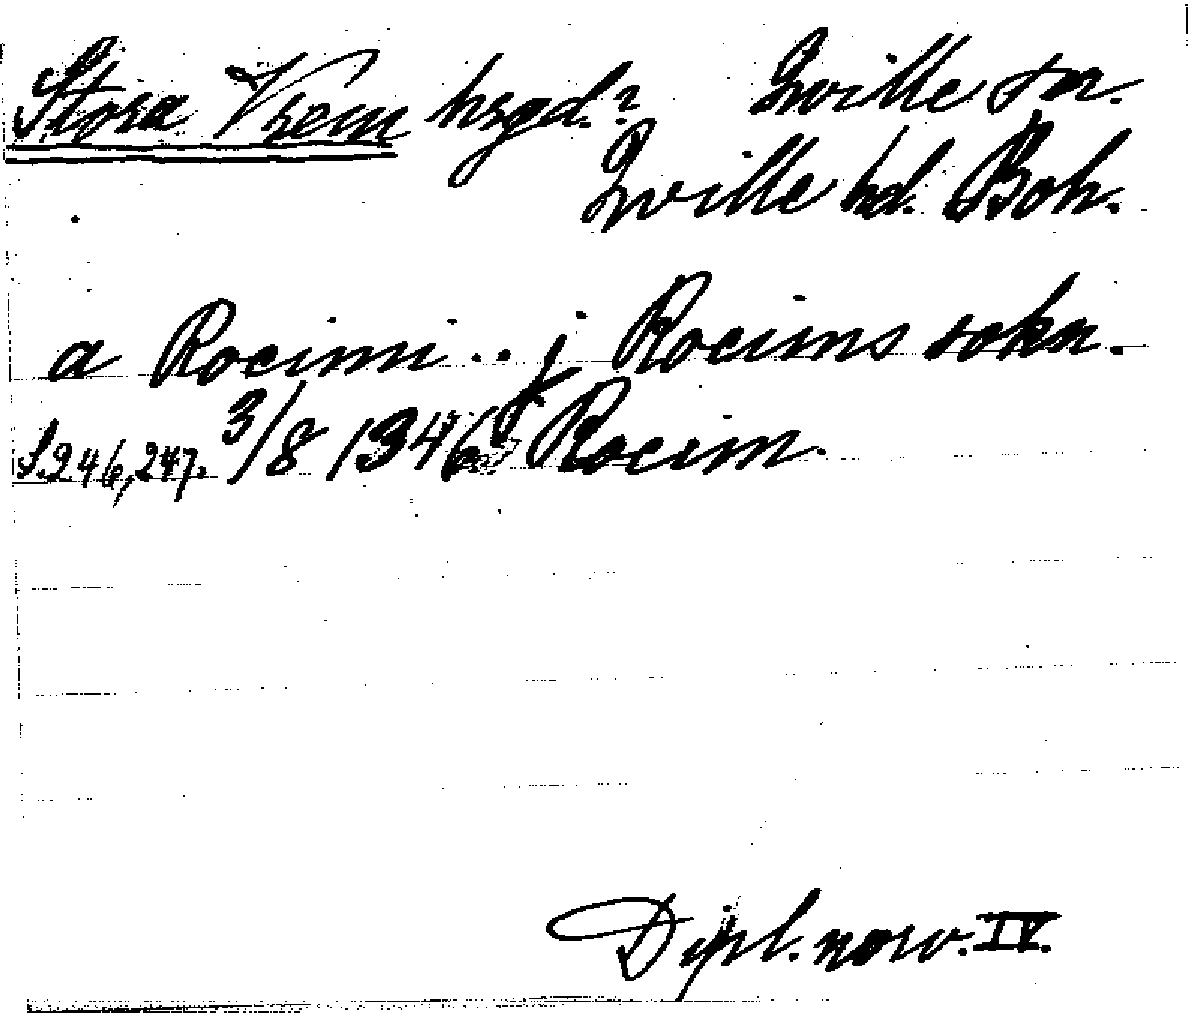 Stora Vrem hrgd.? Qville sn.
Qville hd. Boh.
a Roeimi .. j Roeims sokn.
S. 246, 247. 3/8 1346 Roeim.
Dipl. norv. IV.